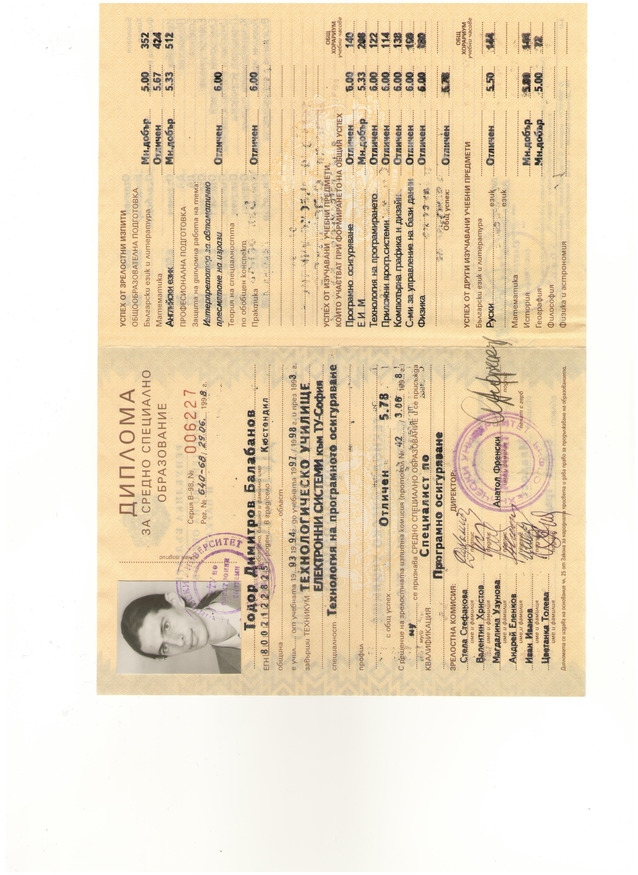 ДИПЛОМА
ЗА СРЕДНО СПЕЦИАЛНО
ОБРАЗОВАНИЕ
Серия В-98, № 006227
Рег. № 640-68, 29.06. 1998 г.
Тодор Димитров Балабанов
ЕГН 8002122825
Кюстендил
община област
завърши ТЕХНИКУМ ТЕХНОЛОГИЧЕСКО УЧИЛИЩЕ
ЕЛЕКТРОННИ СИСТЕМИ към ТУ-София
специалност Технология на програмното осигуряване
профил
с общ успех Отличен 5.78
му се признава СРЕДНО СПЕЦИАЛНО ОБРАЗОВАНИЕ и се присъжда
КВАЛИФИКАЦИЯ Специалист по
Програмно осигуряване
ЗРЕЛОСТНА КОМИСИЯ:
ДИРЕКТОР:
Стела Стефанова
Валентин Христов
Магдалина Узунова
Андрей Еленков
Иван Иванов
Цветанка Толева
Анатол Френски
УСПЕХ ОТ ЗРЕЛОСТНИ ИЗПИТИ
ОБЩООБРАЗОВАТЕЛНА ПОДГОТОВКА
Български език и литература Мн.добър 5.00 352
Математика Отличен 5.67 424
Английски език Мн.добър 5.33 512
ПРОФЕСИОНАЛНА ПОДГОТОВКА
Защита на дипломна работа на тема:
Интерпретатор за автоматично
пресмятане на изрази Отличен 6.00
Теория на специалността
по обобщен конспект
Практика Отличен 6.00
УСПЕХ ОТ ИЗУЧАВАНИ УЧЕБНИ ПРЕДМЕТИ,
КОИТО УЧАСТВАТ ПРИ ФОРМИРАНЕТО НА ОБЩИЯ УСПЕХ
ОБЩ
ХОРАРИУМ
учебни часове
Програмно осигуряване Отличен 6.00 140
Е И М Мн.добър 5.33
Технология на програмирането Отличен 6.00 122
Приложни прогр.системи Отличен 6.00 114
Компютърна графика и дизайн Отличен 6.00 138
С-ми за управление на бази данни Отличен 6.00
Физика Отличен 6.00
Общ успех: Отличен
УСПЕХ ОТ ДРУГИ ИЗУЧАВАНИ УЧЕБНИ ПРЕДМЕТИ
ОБЩ
ХОРАРИУМ
учебни часове
Български език и литература
Руски език Отличен 5.50
език
Математика
История Мн.добър
География Мн.добър 5.00 72
Философия
Физика и астрономия